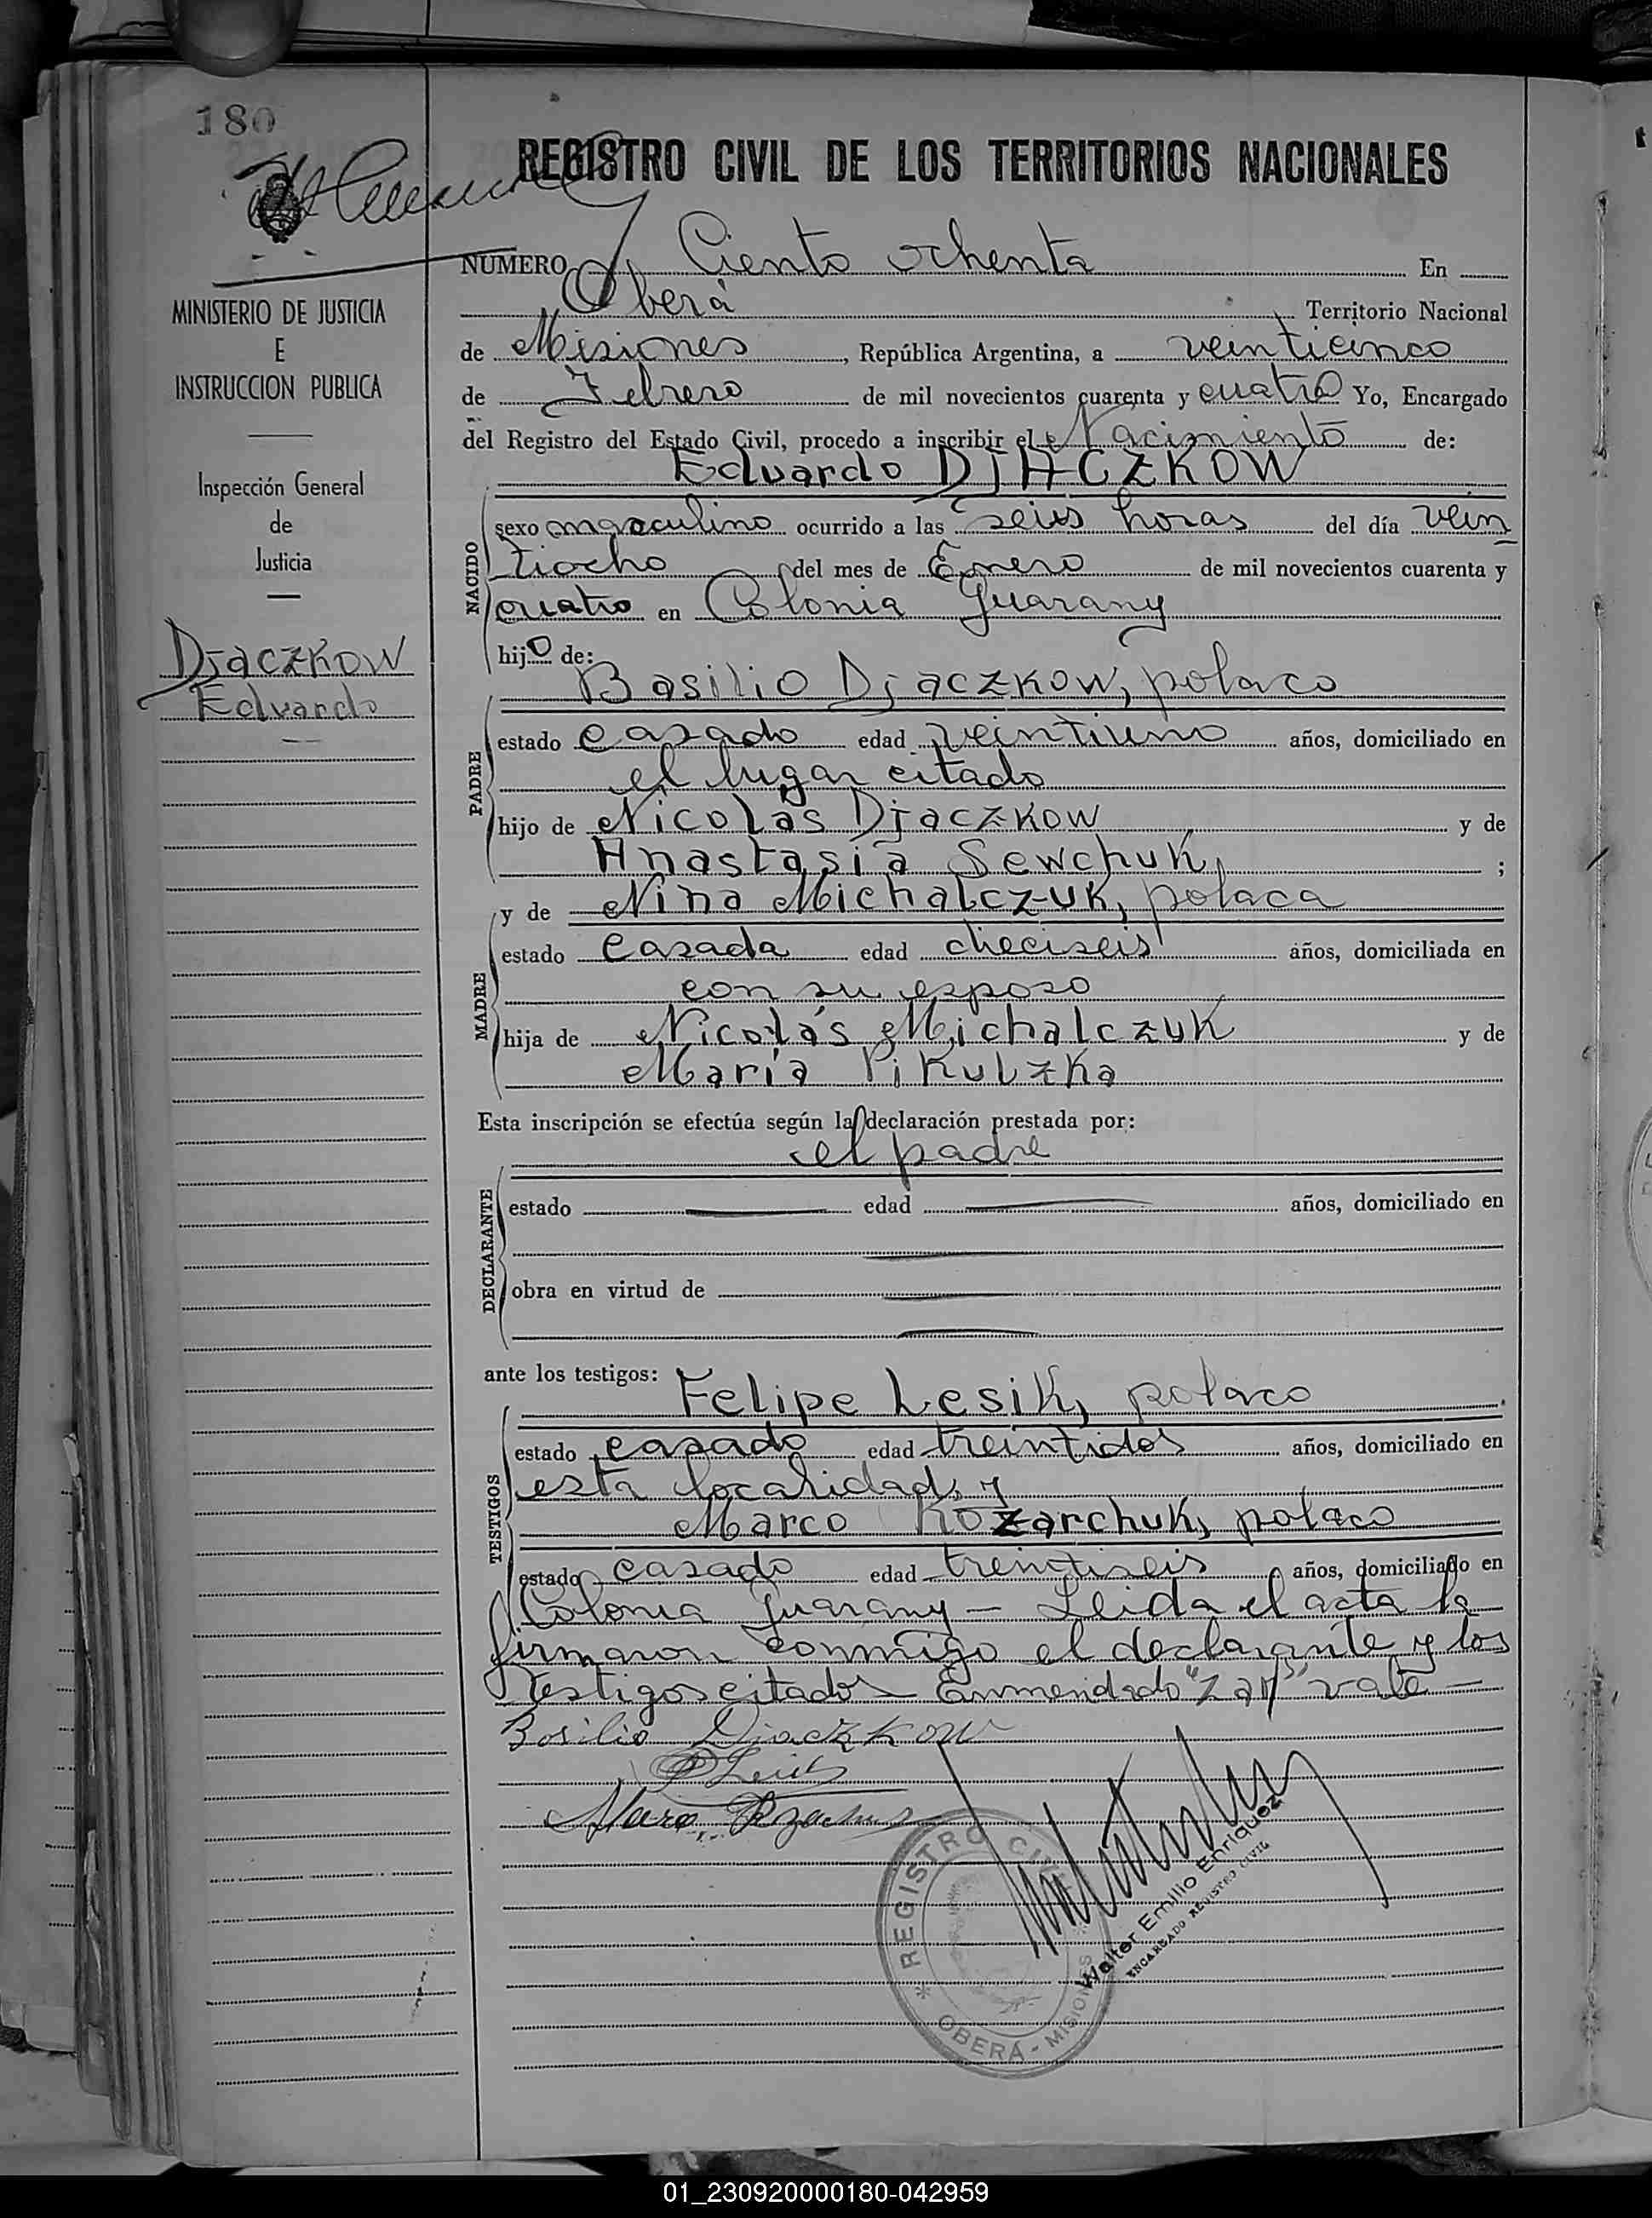 180
REGISTRO CIVIL DE LOS TERRITORIOS NACIONALES
NUMERO Ciento ochenta En
Oberá Territorio Nacional
de Misiones, República Argentina, a veinticinco
de Febrero de mil novecientos cuarenta y cuatro Yo, Encargado
del Registro del Estado Civil, procedo a inscribir el Nacimiento de:
Eduardo DJACZKOW
NACIDO
sexo masculino ocurrido a las seis horas del día vein
tiocho del mes de Enero de mil novecientos cuarenta y
cuatro en Colonia Guarany
hijo de:
Basilio Djaczkow, polaco
PADRE
estado casado edad veintiuno años, domiciliado en
el lugar citado
hijo de Nicolás Djaczkow y de
Anastasia Sewchuk, ;
y de Nina Michalczuk, polaca
MADRE
estado casada edad dieciseis años, domiciliada en
con su esposo
hija de Nicolás Michalczuk y de
María Pikulzka
Esta inscripción se efectúa según la declaración prestada por:
el padre
DECLARANTE
estado edad años, domiciliado en
obra en virtud de
ante los testigos:
Felipe Lesik, polaco
TESTIGOS
estado casado edad treintidos años, domiciliado en
esta localidad, y
Marco Kozarchuk, polaco
estado casado edad treintiseis años, domiciliado en
Colonia Guarany - Leida el acta la
firmaron conmigo el declarante y los
testigos citados - Enmendado "zar" vale -
Basilio Djaczkow
MINISTERIO DE JUSTICIA
E
INSTRUCCION PUBLICA
Inspección General
de
Justicia
Djaczkow
Eduardo
REGISTRO CIVIL
OBERÁ - MISIONES
Walter Emilio Enriquez
ENCARGADO REGISTRO CIVIL
01_230920000180-042959